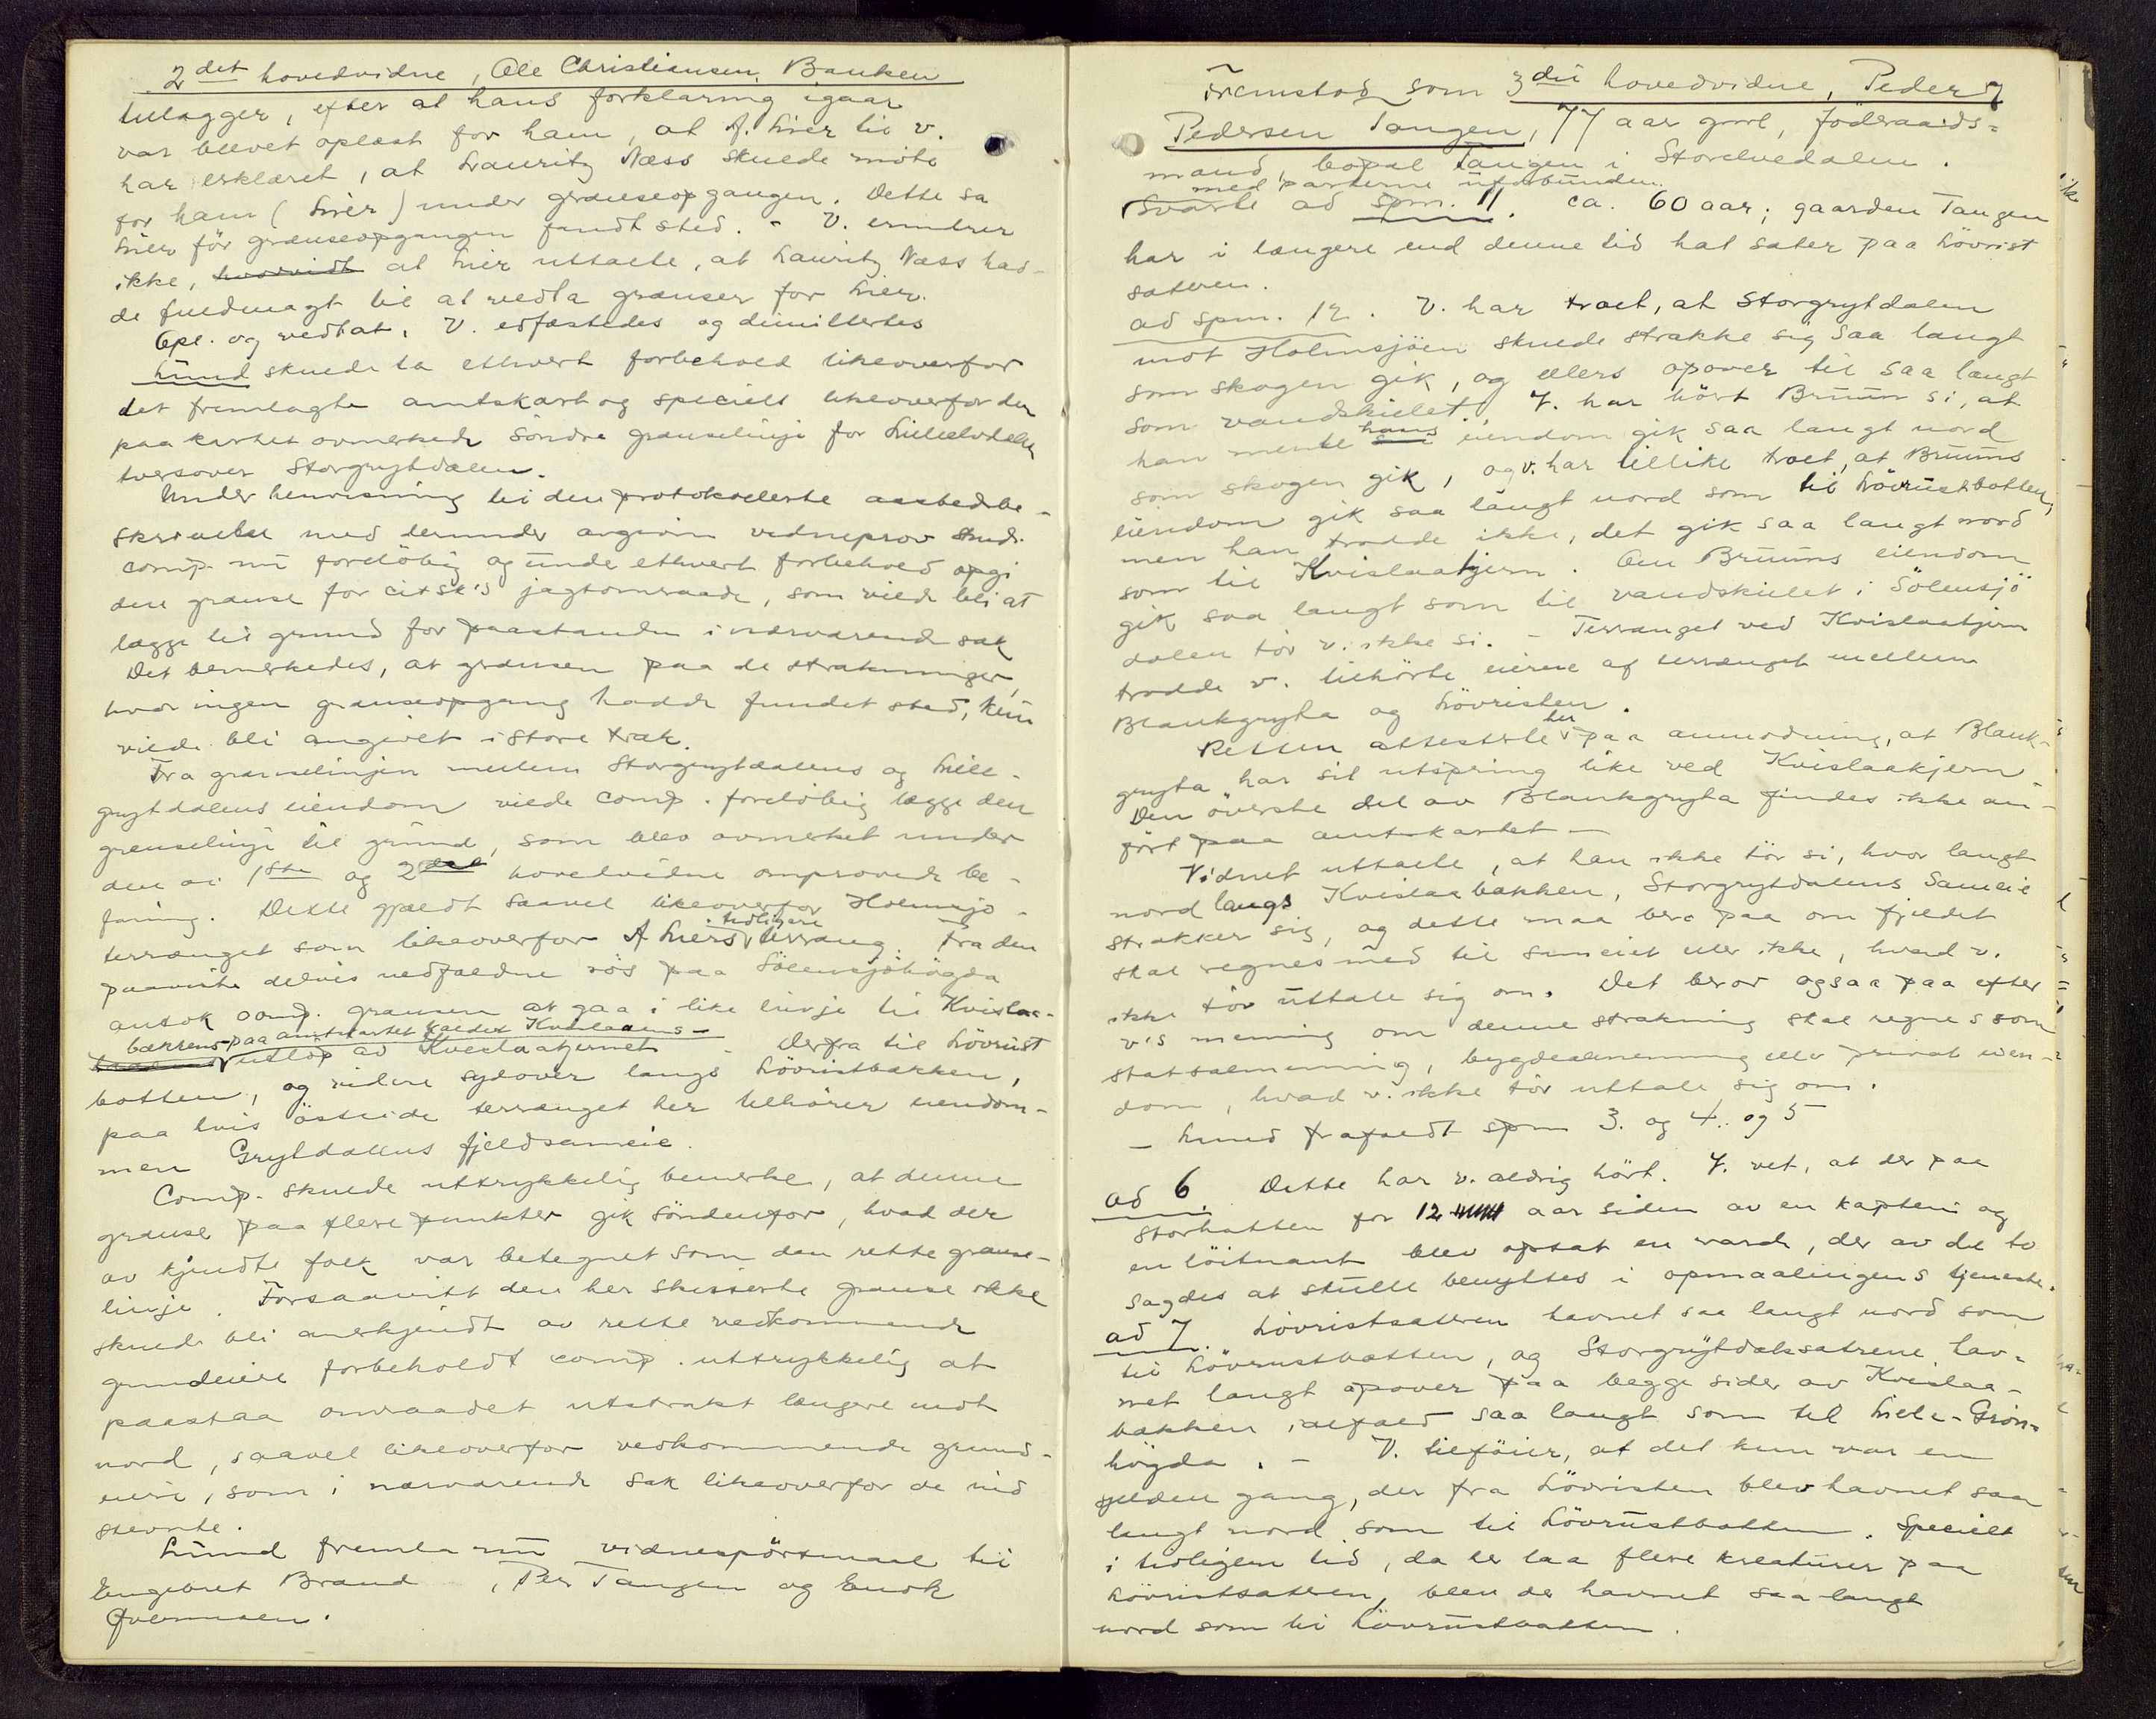 2det hovedvidne, Ole Christiansen Banken
tillægger, efter at hans forklaring igaar
var blevet oplæst for ham, at A. Lier til v.
har erklæret, at Lauritz Næss skulde möte
for ham (Lier) under grænseopgangen. Dette sa
Lier för grænseopgangen fandt sted. - V. erindrer
ikke, hvorvidt at Lier uttalte, at Lauritz Næss had-
de fuldmagt til at vedta grænser for Lier.
Opl. og vedtat. V. edfæstedes og dimittertes
Lund skulde ta ethvert forbehold likeoverfor
det fremlagte amtskart og specielt likeoverfor den
paa kartet avmerkede söndre grænselinje for Lilleelvdalen
tversover Storgrytdalen.
Under henvisning til den protokollerte aastedsbe-
skrivelse med derunder avgivne vidneprov vilde
comp. nu foreløbig og under ethvert forbehold opgi
den grænse for citsk's jagtomraade, som vilde bli at
lægge til grund for paastanden i nærværende sak
Det bemerkedes, at grænsen paa de strækninger,
hvor ingen grænseopgang hadde fundet sted, kun
vilde bli angivet i store træk.
Fra grænselinjen mellem Storgrytdalens og Lille-
grytdalens eiendom vilde comp. foreløbig lægge den
grænselinje til grund, som blev avmerket under
den av 1ste og 2det hovedvidne omprovede be-
faring. Dette gjældt saavel likeoverfor Holmsjø-
terrænget som likeoverfor A Liers tidligere terræng. Fra den
paaviste delvis nedfaldne rös paa Sölensjöhögda
antok comp. grænsen at gaa i like linje til Kvislaa-
bækkens - paa amtskartet kaldet Kvislaaens -
utlöp av Kvislaatjernet - Derfra til Lövrust
botten, og videre sydover langs Lövristbækken,
paa hvis östside terrænget her tilhörer eiendom-
men Grytdalens fjeldsameie.
Comp. skulde uttrykkelig bemerke, at denne
grænse paa flere punkter gik söndenfor, hvad der
av kjendte folk var betegnet som den rette grænse-
linje. Forsaavitt den her skisserte grænse ikke
skulde bli anerkjendt av rette vedkommende
grundeiere forbeholdt comp. uttrykkelig at
paastaa omraadet utstrakt længere mot
nord, saavel likeoverfor vedkommende grund-
eiere, som i nærværende sak likeoverfor de ind
stevnte.
Lund fremla nu vidnespörsmaal til
Engebret Brænd, Per Tangen og Enok
Fremstod som 3die hovedvidne, Peder
Pedersen Tangen, 77 aar gml, föderaads-
mand, bopæl Tangen i Storelvedalen.
med parterne uforbunden.
Svarte ad Spm. 11. ca. 60 aar; gaarden Tangen
har i længere end denne tid hat sæter paa Lövrist
sæteren.
ad spm. 12. V. har troet, at Storgrytdalen
mot Holmsjöen skulde strække sig saa langt
som skogen gik, og ellers opover til saa langt
som vandskillet. V. har hört Bruun si, at
han mente hans eiendom gik saa langt nord
som skogen gik, og v. har tillike troet, at Bruuns
eiendom gik saa langt nord som til Lövrustbotten,
men han trodde ikke, det gik saa langt nord
som til Kvislaatjern. Om Bruuns eiendom
gik saa langt som til vandskillet i Sölensjö
dalen tör v. ikke si. - Terrænget ved Kvislaatjern
trodde v. tilhörte eierne af terrænget mellem
Blankgryta og Lövristen.
Retten attesterte her paa anmodning, at Blank-
gryta har sit utspring like ved Kvislaakjern.
Den överste del av Blankgryta findes ikke an-
fört paa amtskartet -
Vidnet uttalte, at han ikke tör si, hvor langt
nord langs Kvislaabækken, Storgrytdalens Sameie
strækker sig, og dette maa bero paa om fjeldet
skal regnes med til sameiet eller ikke, hvad v.
ikke tör uttale sig om. Det beror ogsaa paa efter
v's mening om denne strækning skal regnes som
statsalmenning, bygdealmenning eller privat eien-
dom, hvad v. ikke tör uttale sig om.
- Lund frafaldt spm 3. og 4. og 5
ad 6. Dette har v. aldrig hört. V. vet, at der paa
Storhatten for 12 aar siden av en kaptein og
en löitnant blev opsat en varde, der av de to
sagdes at skulle benyttes i opmaalingens tjeneste.
ad 7. Lövristsæteren havnet saa langt nord som
til Lövrustbotten, og Storgrytdalssætrene hav-
net langt opover paa begge sider av Kvislaa-
bækken, ialfald saa langt som til Lille-Grön-
högda. - V. tilföier, at det kun var en
sjelden gang, der fra Lövristen blev havnet saa
langt nord som til Lövrustbotten. Specielt
i tidligere tid, da der laa flere kreaturer paa
Lövristsæteren, blev der havnet saa langt
nord som til Lövrustbotten.